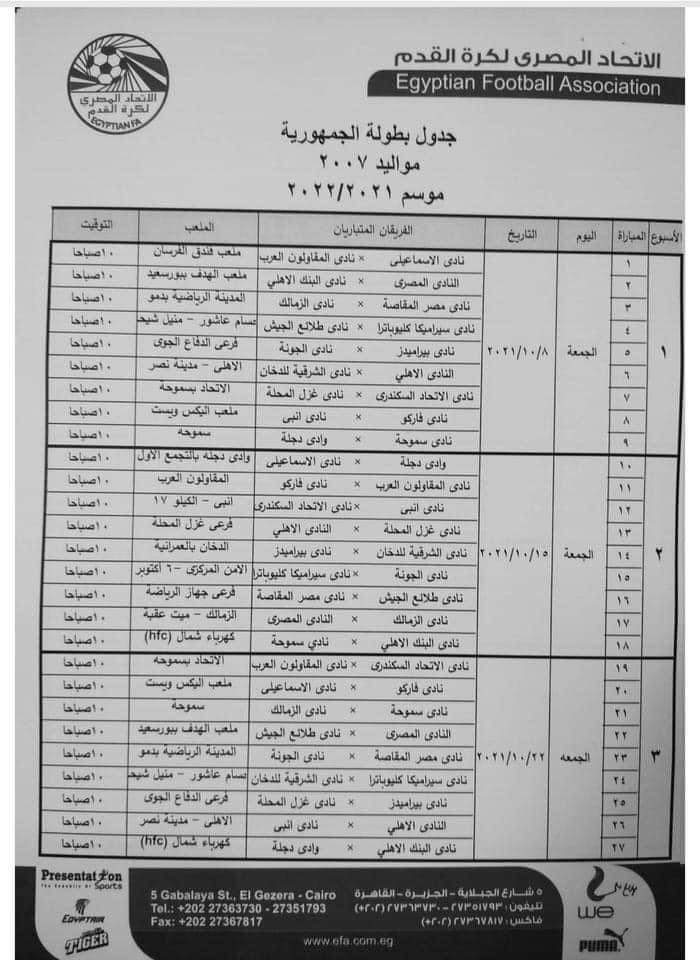 الاتحاد المصرى لكرة القدم
Egyptian Football Association
الاتحاد المصرى
لكرة القدم
EGYPTIAN F.A
جدول بطولة الجمهورية
مواليد ٢٠٠٧
موسم ٢٠٢٢/٢٠٢١
الأسبوع المباراة اليوم التاريخ الفريقان المتباريان الملعب التوقيت
١ الجمعة ٢٠٢١/١٠/٨
١ نادى الاسماعيلى × نادى المقاولون العرب ملعب فندق الفرسان ١٠صباحا
٢ النادى المصرى × نادى البنك الاهلي ملعب الهدف ببورسعيد ١٠صباحا
٣ نادى مصر المقاصة × نادى الزمالك المدينة الرياضية بدمو ١٠صباحا
٤ نادى سيراميكا كليوباترا × نادى طلائع الجيش حسام عاشور - منيل شيحة ١٠صباحا
٥ نادى بيراميدز × نادى الجونة فرعى الدفاع الجوى ١٠صباحا
٦ النادى الاهلي × نادى الشرقية للدخان الاهلى - مدينة نصر ١٠صباحا
٧ نادى الاتحاد السكندرى × نادى غزل المحلة الاتحاد بسموحة ١٠صباحا
٨ نادى فاركو × نادى انبى ملعب اليكس ويست ١٠صباحا
٩ نادى سموحة × وادى دجلة سموحه ١٠صباحا
٢ الجمعة ٢٠٢١/١٠/١٥
١٠ وادى دجلة × نادى الاسماعيلى وادى دجله بالتجمع الأول ١٠صباحا
١١ نادى المقاولون العرب × نادى فاركو المقاولون العرب ١٠صباحا
١٢ نادى انبى × نادى الاتحاد السكندرى انبى - الكيلو ١٧ ١٠صباحا
١٣ نادى غزل المحلة × النادى الاهلي فرعى غزل المحلة ١٠صباحا
١٤ نادى الشرقية للدخان × نادى بيراميدز الدخان بالعمرانية ١٠صباحا
١٥ نادى الجونة × نادى سيراميكا كليوباترا الامن المركزى - ٦ أكتوبر ١٠صباحا
١٦ نادى طلائع الجيش × نادى مصر المقاصة فرعى جهاز الرياضة ١٠صباحا
١٧ نادى الزمالك × النادى المصرى الزمالك - ميت عقبة ١٠صباحا
١٨ نادى البنك الاهلي × نادي سموحة كهرباء شمال (hfc) ١٠صباحا
٣ الجمعه ٢٠٢١/١٠/٢٢
١٩ نادى الاتحاد السكندرى × نادى المقاولون العرب الاتحاد بسموحه ١٠صباحا
٢٠ نادى فاركو × نادى الاسماعيلى ملعب اليكس ويست ١٠صباحا
٢١ نادى سموحة × نادى الزمالك سموحة ١٠صباحا
٢٢ النادى المصرى × نادى طلائع الجيش ملعب الهدف ببورسعيد ١٠صباحا
٢٣ نادى مصر المقاصة × نادى الجونة المدينة الرياضية بدمو ١٠صباحا
٢٤ نادى سيراميكا كليوباترا × نادى الشرقية للدخان حسام عاشور - منيل شيحة ١٠صباحا
٢٥ نادى بيراميدز × نادى غزل المحلة فرعى الدفاع الجوى ١٠صباحا
٢٦ النادى الاهلي × نادى انبى الاهلى - مدينة نصر ١٠صباحا
٢٧ نادى البنك الاهلي × وادى دجلة كهرباء شمال (hfc) ١٠صباحا
Presentation
Sports
EGYPTAIR
TIGER
5 Gabalaya St., El Gezera - Cairo
Tel.: +202 27363730 - 27351793
Fax: +202 27367817
٥ شارع الجبلاية - الجزيرة - القاهرة
تليفون: ٢٧٣٥١٧٩٣ - ٢٧٣٦٣٧٣٠ (٢٠٢+)
فاكس: ٢٧٣٦٧٨١٧ (٢٠٢+)
www.efa.com.eg
we
PUMA